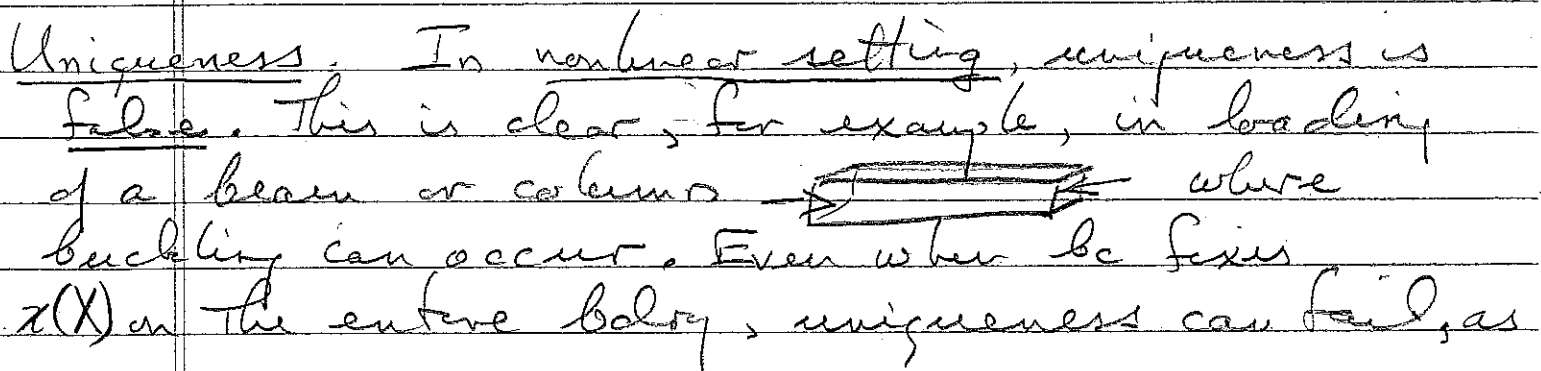 Uniqueness. In nonlinear setting, uniqueness is
false. This is clear, for example, in loading
of a beam or column where
buckling can occur. Even when bc fixes
x(X) on the entire bdry, uniqueness can fail, as